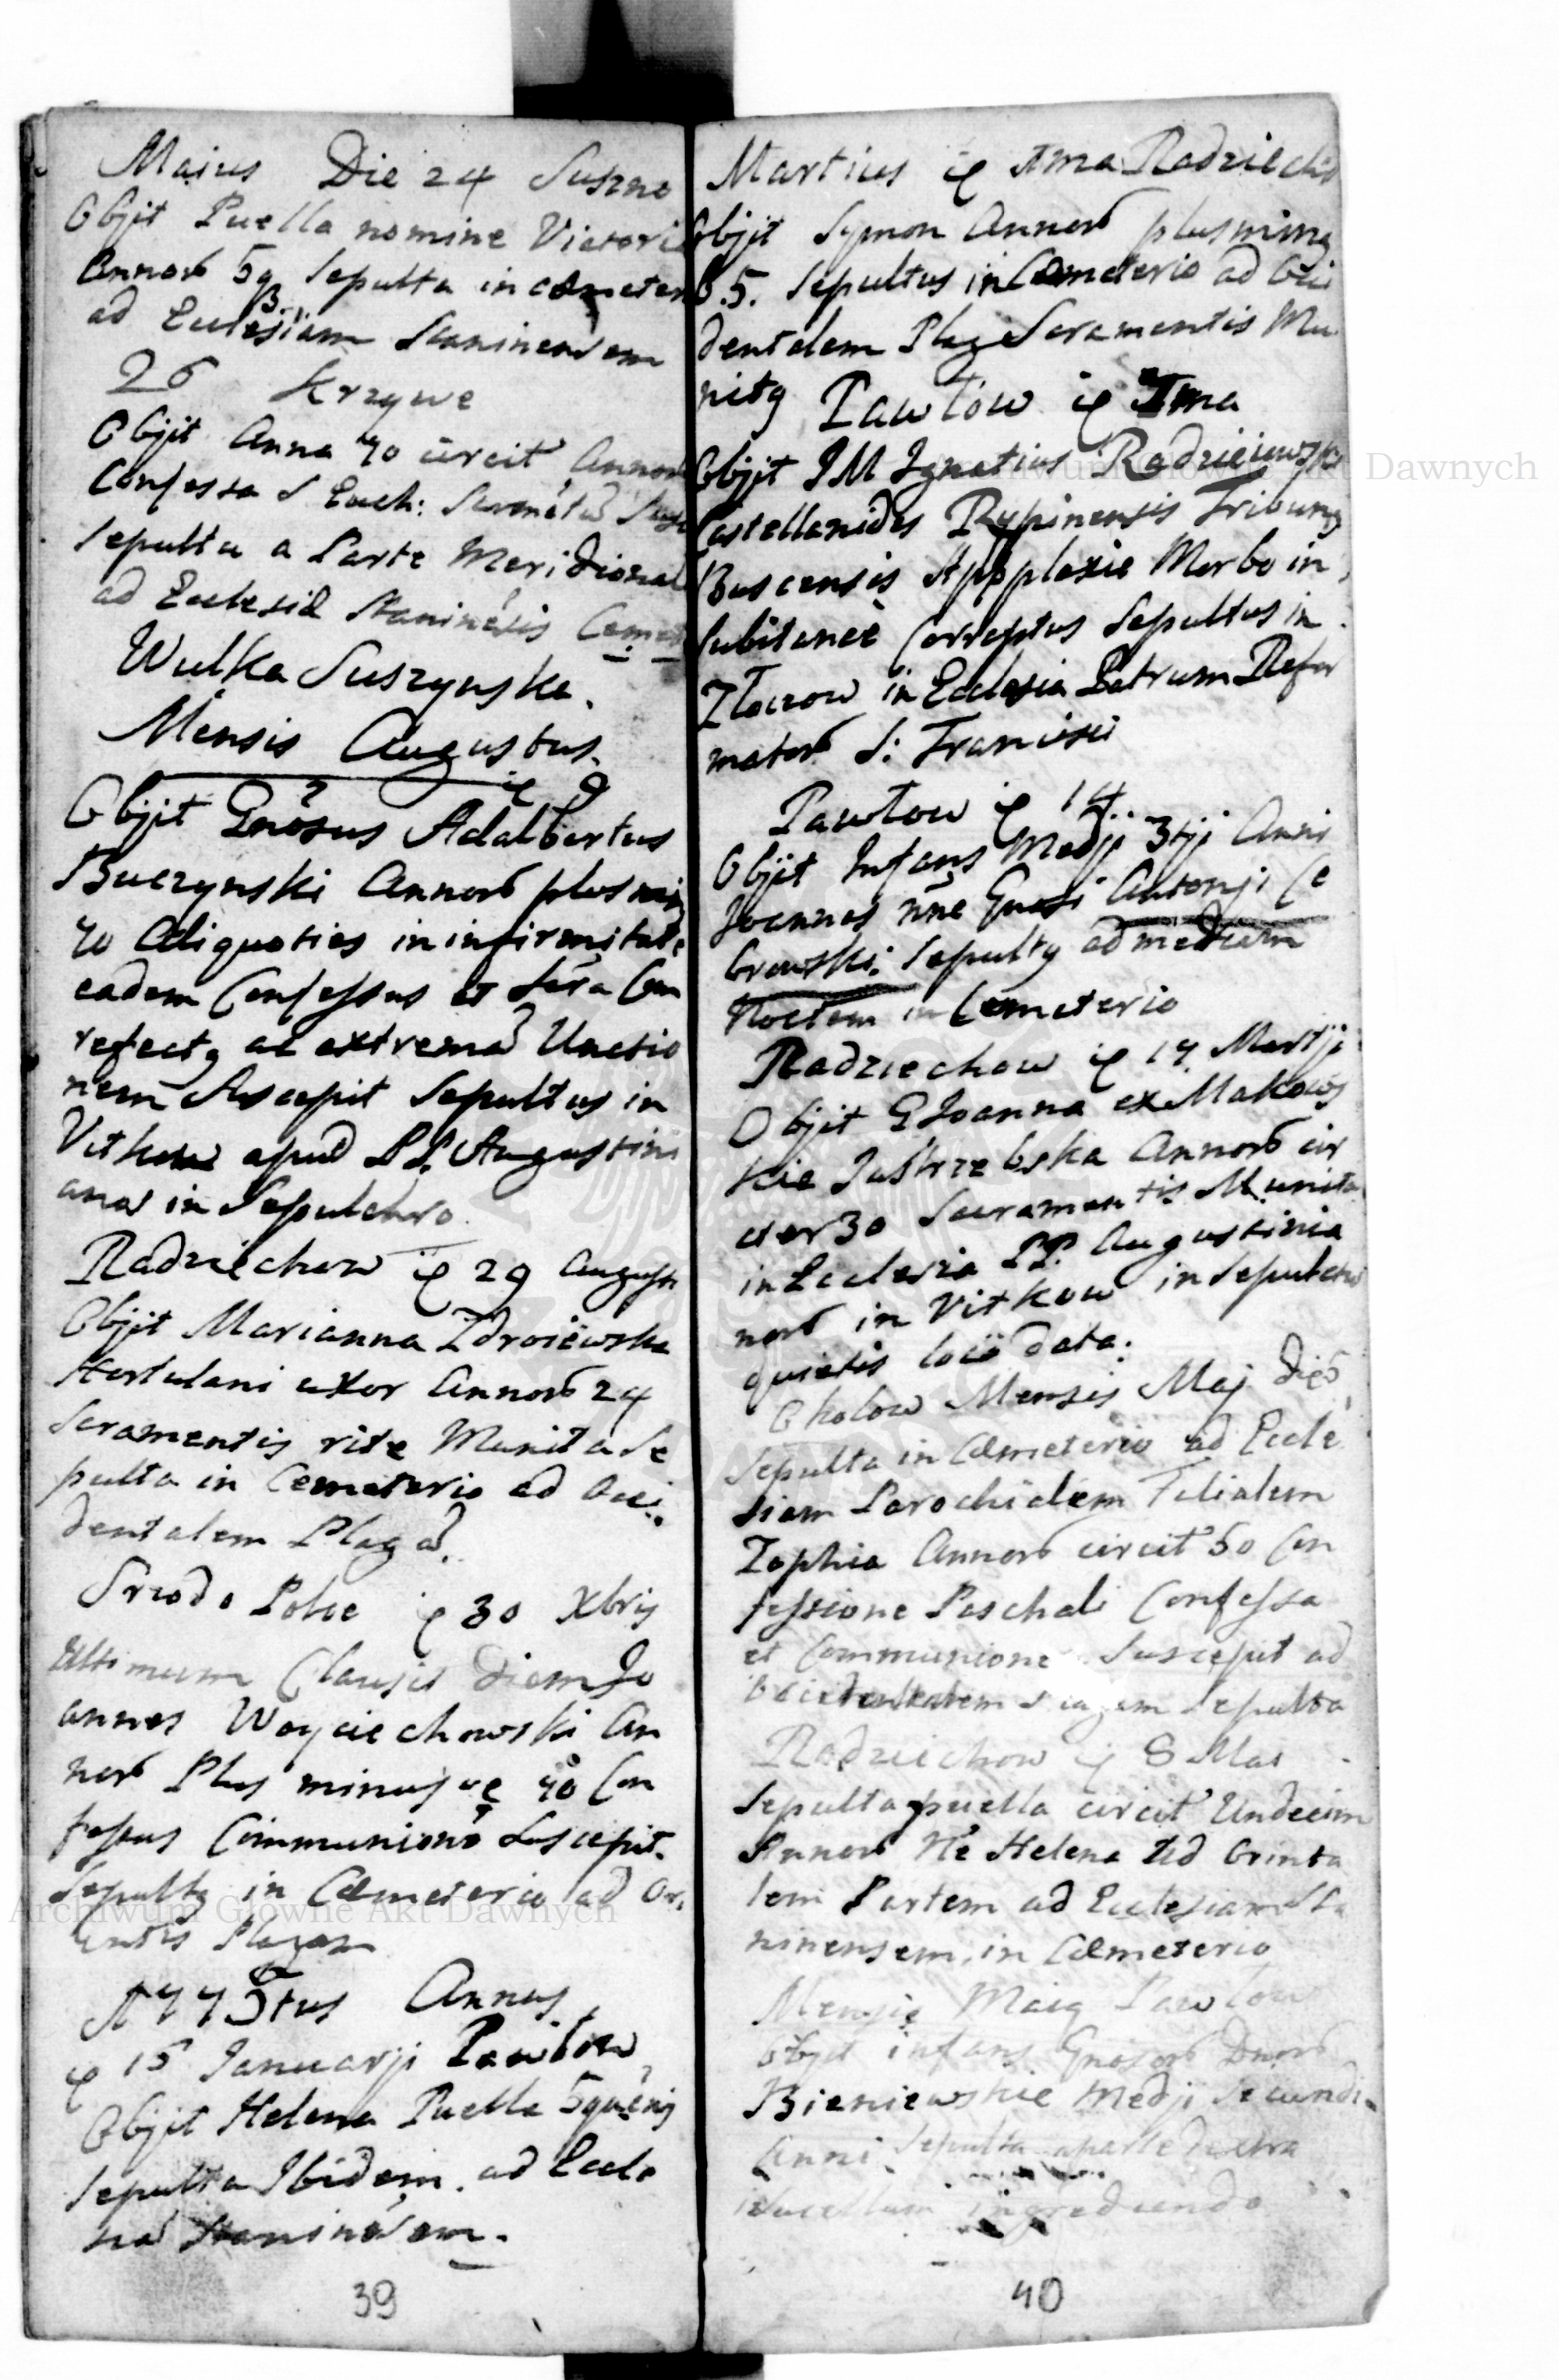 Maius Die 24 Suszno
Obijt Puella nomine Victoria
Annorb 5q Sepulta in cemeter
ad Ecclesiam Staninensem
26 Krzywe
Obijt Anna 70 circit Annor
Confessa S Euch:
Sepulta a Parte Meridional
ad Ecclesiã Staninẽsis Cemet
Wulka Suszynska.
Mensis Augustus.
ie 9
Obijt Gnosus Adalbertus
Buczynski Annorb plus min
70 Aliquoties in infirmitate
eadem Confessus et Sacra Com
refectg ac extremã Unctio
nem Suscepit Sepultus in
Vitkow apud PP. Augustini
anos in Sepulchro.
Radziechow ie 29 Augusti
Obijt Marianna Zdroiewska
Hortulani uxor Annorb 24
Sacramentis rite Munita Se
pulta in Cemeterio ad Occi
dentalem Plagã.
Srzodo Polce ie 30 Xbris
Ultimum Clausit Diem Jo
annes Woyciechowski An
norb Plus minusve 40 Con
fessus Communionẽ Suscepit.
Sepultg in Cœmeterio ad Ori
entis Plagam
A 775tus Annus
ie 15 Januarji Pawlow
Obijt Helena Puella 5quẽnis
Sepulta Ibidem. ad Eccle
siã Staninẽsem.
39
Martius ie Ima Radziechow
Obijt Symon Annorb plusming
65. Sepultus in Cœmeterio ad Occi
dentalem Plag Sacramentis Mu
nitg Pawlow ie Ima
Obijt JM Ignatius Radzieiewski
Castellanides Rypinensis Tribung
Buscensis Appoplexie Morbo in
Subitaneẽ Correptus Sepultus in
Zloczow in Ecclesia Patrum Refor
matorb S: Francisci
Pawlow ie 14
Obijt Infans Medji 3tji Anni
Joannes nñe Gnosi Antonji Ce
browski. Sepultg ad mediam
Noctem in Cemeterio
Radziechow ie 17 Martji
Obijt G Joanna ex Makows
kie Jastrzebska Annorb cir
citer 30 Sacramentis Munita
in Ecclesia PP. Augustinia
norb in Vitkow in Sepulchro
quietis loco data.
Oholow Mensis Maj Die 5
Sepulta in Cœmeterio ad Eccle
siam Parochialem Filialem
Zophia Annorb circit 50 Con
fessione Paschali Confessa
et Communione Suscepit ad
Occidentalem Plagam Sepulta
Radziechow ie 8 Mai
Sepulta puella circit Undecim
Annorb Nẽ Helena Ad Orinta
lem Partem ad Ecclesiam Sta
ninensem, in Cœmeterio
Mensis Maig Pawlow
Obijt infans Gnosorb Dnorb
Bieniewskie Medji Secundi
Anni Sepulta a parte dextra
ingrediendo
40
Archiwum Główne Akt Dawnych
Archiwum Główne Akt Dawnych